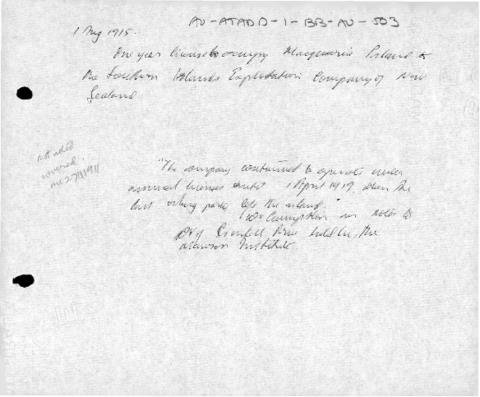 AU-ATADD-1-BB-AU-503
1 Aug 1915.
One year license to occupy Macquarie Island to
the Southern Islands Exploitation Company of New
Zealand
"The company continued to operate under
annual licenses until 1 April 1919, when the
last oiling party left the island."
Dr Cumpston in notes to
Prof. Grenfell Price held in the
Mawson Institute